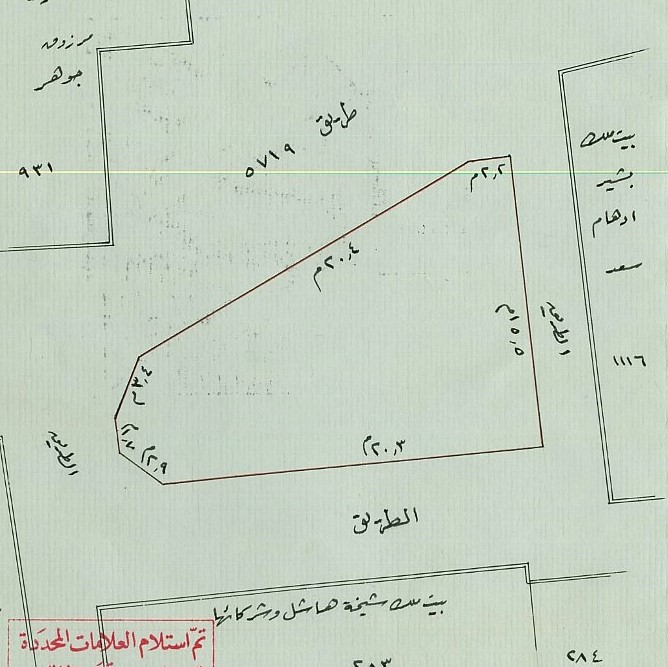 مرزوق
جوهر
٩٣١
طريق
٥٧١٩
بيت ملك
بشير
ادهام
سعد
١١١٦
٢,٢م
٢٠,٤م
١٥,٥م
الطريق
٣,٤م
١,٧م
٢,٩م
٢٠,٣م
الطريق
الطريق
بيت ملك شيخة هاشل وشركائها
تم استلام العلامات المحددة
٢٨٣
٢٨٤